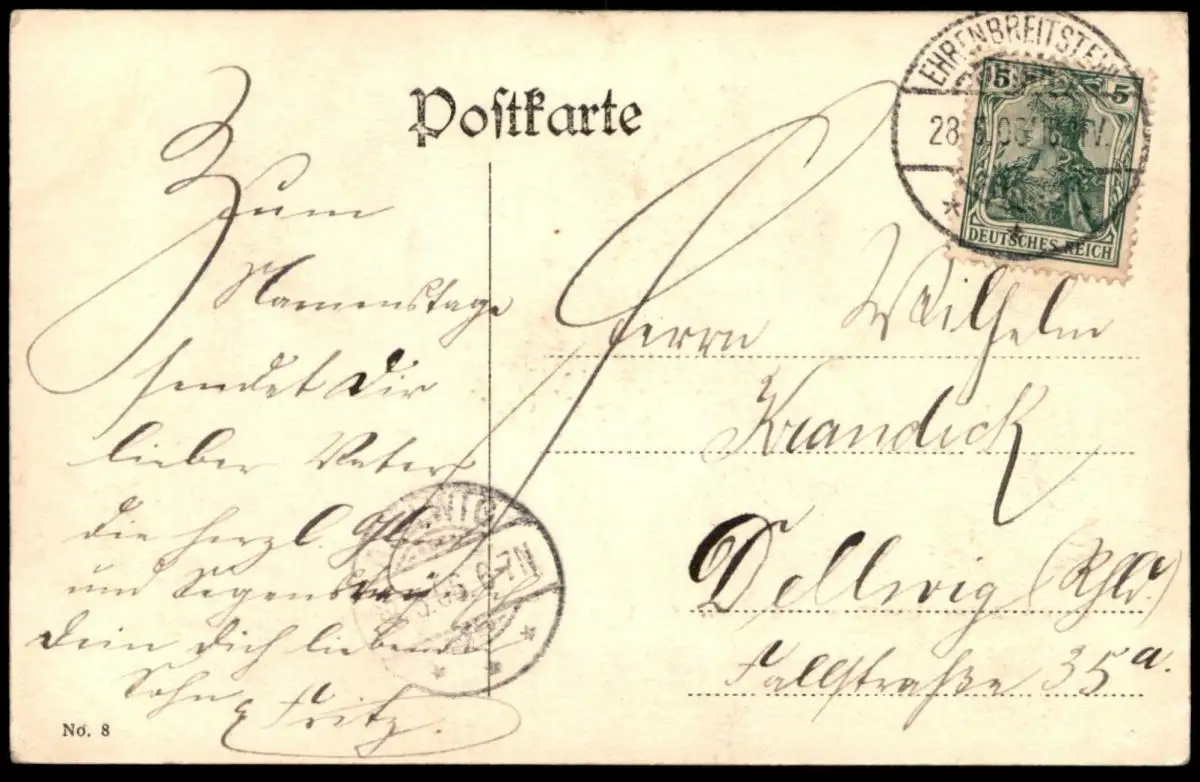 Postkarte
EHRENBREITSTEIN
28. 06
5 5
DEUTSCHES REICH
Zum
Namenstage
sendet Dir
lieber Vater
die herzl. Glück
und Segenswünsche
Dein Dich liebender
Sohn Fritz.
Herrn Wilhelm
Krandick
Dellwig (Rhld.)
Fallstraße 35a.
06. 6-7N
No. 8